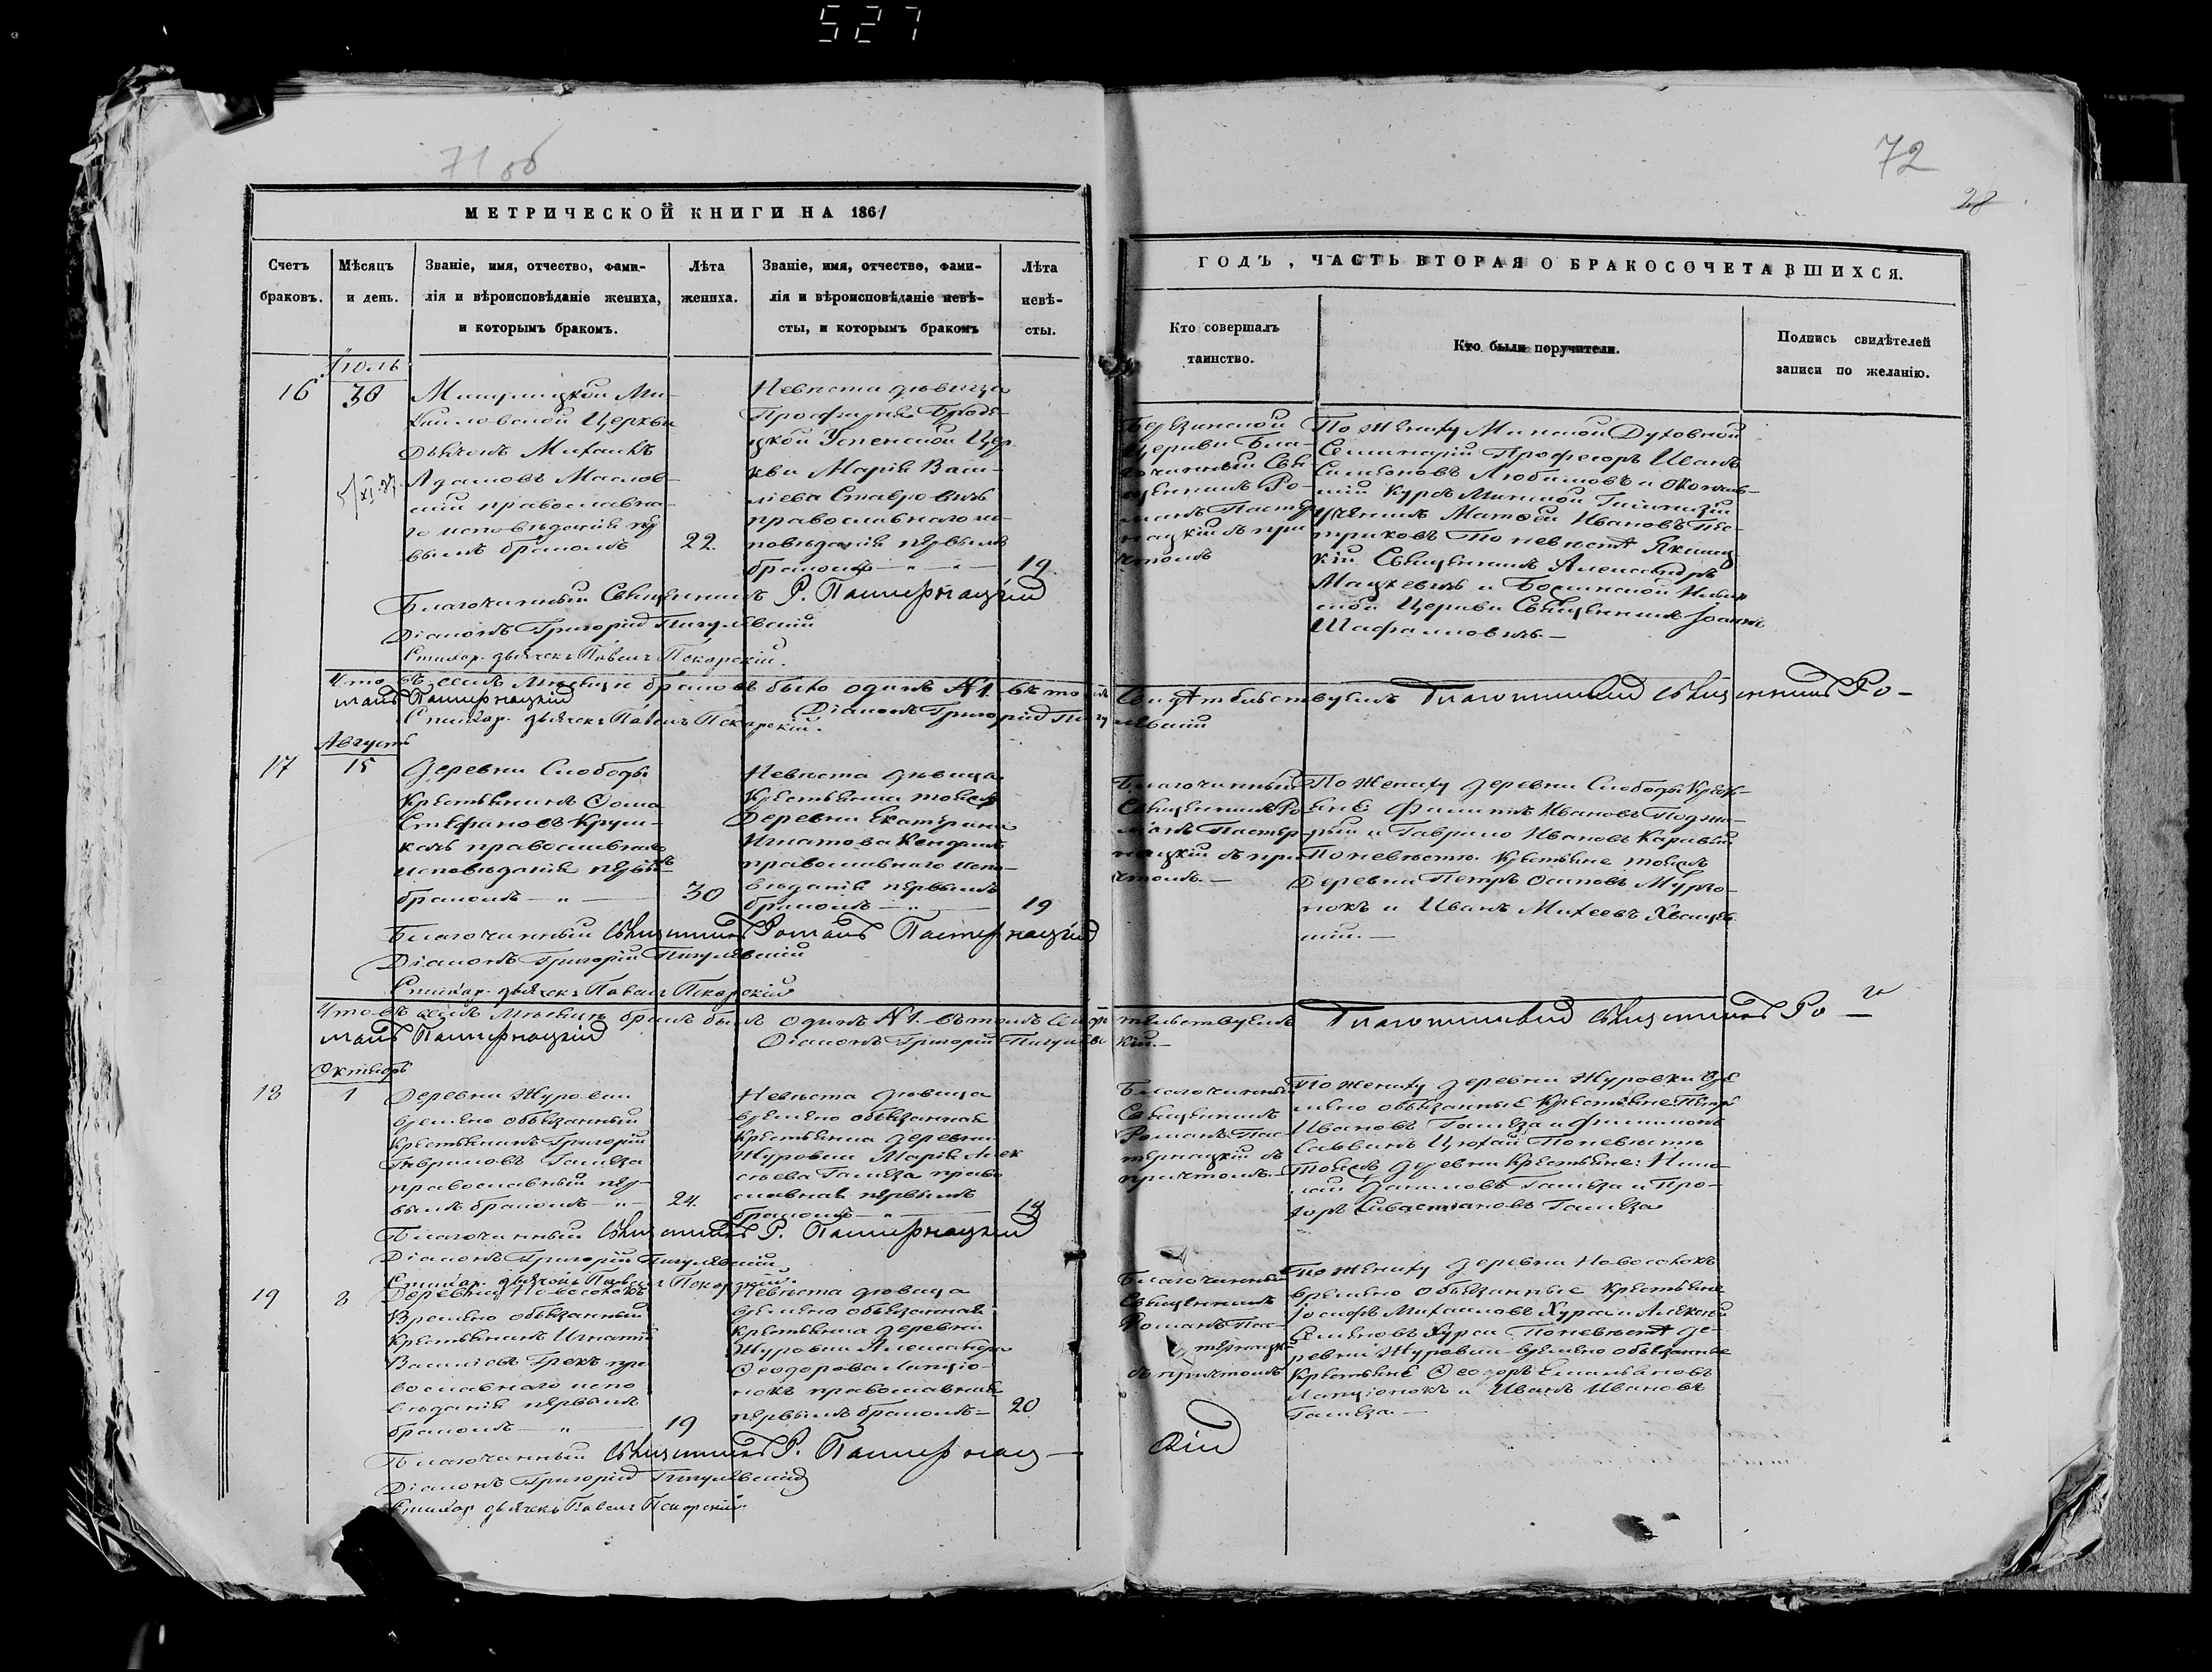 527
71 об
72
28
МЕТРИЧЕСКОЙ КНИГИ НА 1861
ГОДЪ, ЧАСТЬ ВТОРАЯ О БРАКОСОЧЕТАВШИХСЯ.
Счетъ
браковъ.
Мѣсяцъ
и день.
Званіе, имя, отчество, фами-
лія и вѣроисповѣданіе жениха,
и которымъ бракомъ.
Лѣта
жениха.
Званіе, имя, отчество, фами-
лія и вѣроисповѣданіе невѣ-
сты, и которымъ бракомъ
Лѣта
невѣ-
сты.
Кто совершалъ
таинство.
Кто были поручители.
Подпись свидѣтелей
записи по желанію.
Іюль
16
30
Ми-
хайловской Церкви
Дьячекъ Михаилъ
Адамовъ Маслов-
скій православна-
го исповѣданія пер
вымъ бракомъ
22.
Невѣста дѣвица
Успенской Цер-
кви Марія Васи-
ліева Ставровичъ
православнаго ис-
повѣданія первымъ
бракомъ — „ — „ —
19
Березинской
Церкви Бла-
гочинный Свя-
щенникъ Ро-
манъ Пастер
нацкій съ при
чтомъ
По жениху Минской Духовной
Семинаріи Професоръ Иванъ
Симеоновъ Любимовъ и окончив-
шій курсъ Минской Гимназіи
ученикъ Матѳей Ивановъ
По невѣстѣ
кій Священникъ Александръ
Мацкевичъ и
Церкви Священникъ Іоаннъ
Шафаловичъ.—
Благочинный Священникъ Р. Пастернацкій
Діаконъ Григорій Пигулевскій
Стихар. дьячекъ Павелъ Пекарскій.
Что въ семъ мѣсяцѣ браковъ было одинъ №1. въ томъ
свидѣтельствуемъ Благочинный Священникъ Ро-
манъ Пастернацкій
Діаконъ Григорій Пигу левскій
Стихар. дьячекъ Павелъ Пекарскій.
Августъ
17
15
Деревни Слободы
Крестьянинъ Ѳома
Стефановъ
православнаго
исповѣданія первы-
бракомъ — „ —
30
Невѣста дѣвица
Крестьянка тойже
Деревни Екатерина
Игнатова
православнаго испо-
вѣданія первымъ
бракомъ — „ —
19
Благочинный
Священникъ Ро
манъ Пастер-
нацкій съ при
чтомъ.—
По жениху деревни Слободы Крестья-
не Филиппъ Ивановъ
и Гаврило Ивановъ
По невѣстѣ Крестьяне тойже
Деревни Петръ Осиповъ
и Иванъ Михеевъ
Благочинный Священникъ Романъ Пастернацкій
Діаконъ Григорій Пигулевскій
Стихар. дьячекъ Павелъ Пекарскій
Что въ семъ мѣсяцѣ бракъ былъ одинъ №1. въ томъ свидѣ
тельствуемъ Благочинный Священникъ Ро —
манъ Пастернацкій
Діаконъ Григорій Пигулевс кій.—
Октябрь
18
1
Деревни Журовки
времено обязанный
Крестьянинъ Григорій
Гавриловъ Галеза
православный пер-
вымъ бракомъ — „
24.
Невѣста дѣвица
времено обязанная
Крестьянка деревни
Журовки Марія Алек
сѣева Галеза право
славная первымъ
бракомъ — „ —
19
Благочинный
Священникъ
Романъ Пас-
тернацкій съ
причтомъ.—
По жениху деревни Журовки вре
мено обязанные Крестьяне: Петръ
Ивановъ Галеза и Филимонъ
По невѣстѣ
тойже деревни Крестьяне: Нико-
лай Даниловъ Галеза и Про-
хоръ Севастіановъ Галеза
Благочинный Священникъ Р. Пастернацкій
Діаконъ Григорій Пигулевскій
Стихар. дьячекъ Павелъ Пекарскій.
19
8
Деревни Новоселокъ
Времено обязанный
Крестьянинъ Игнатій
Василіевъ Грекъ пра
вославнаго испо
вѣданія первымъ
бракомъ — „ —
19
Невѣста дѣвица
времено обязанная
Крестьянка деревни
Журовки Александра
Ѳеодорова Лапціо-
нокъ православная
первымъ бракомъ —
20
Благочинный
Священникъ
Романъ Пас-
тернацкій
съ причтомъ
По жениху деревни Новоселокъ
времено обязанные Крестьяне
Іосифъ Михайловъ Хурса и Алексѣй
Семеновъ Хурса По невѣстѣ де-
ревни Журовки времено обязанные
Крестьяне Ѳеодоръ Емельяновъ
Лапціонокъ и Иванъ Ивановъ
Галеза.—
Благочинный Священникъ Р. Пастернац— кій
Діаконъ Григорій Пигулевскій
Стихар дьячекъ Павелъ Пекарскій.